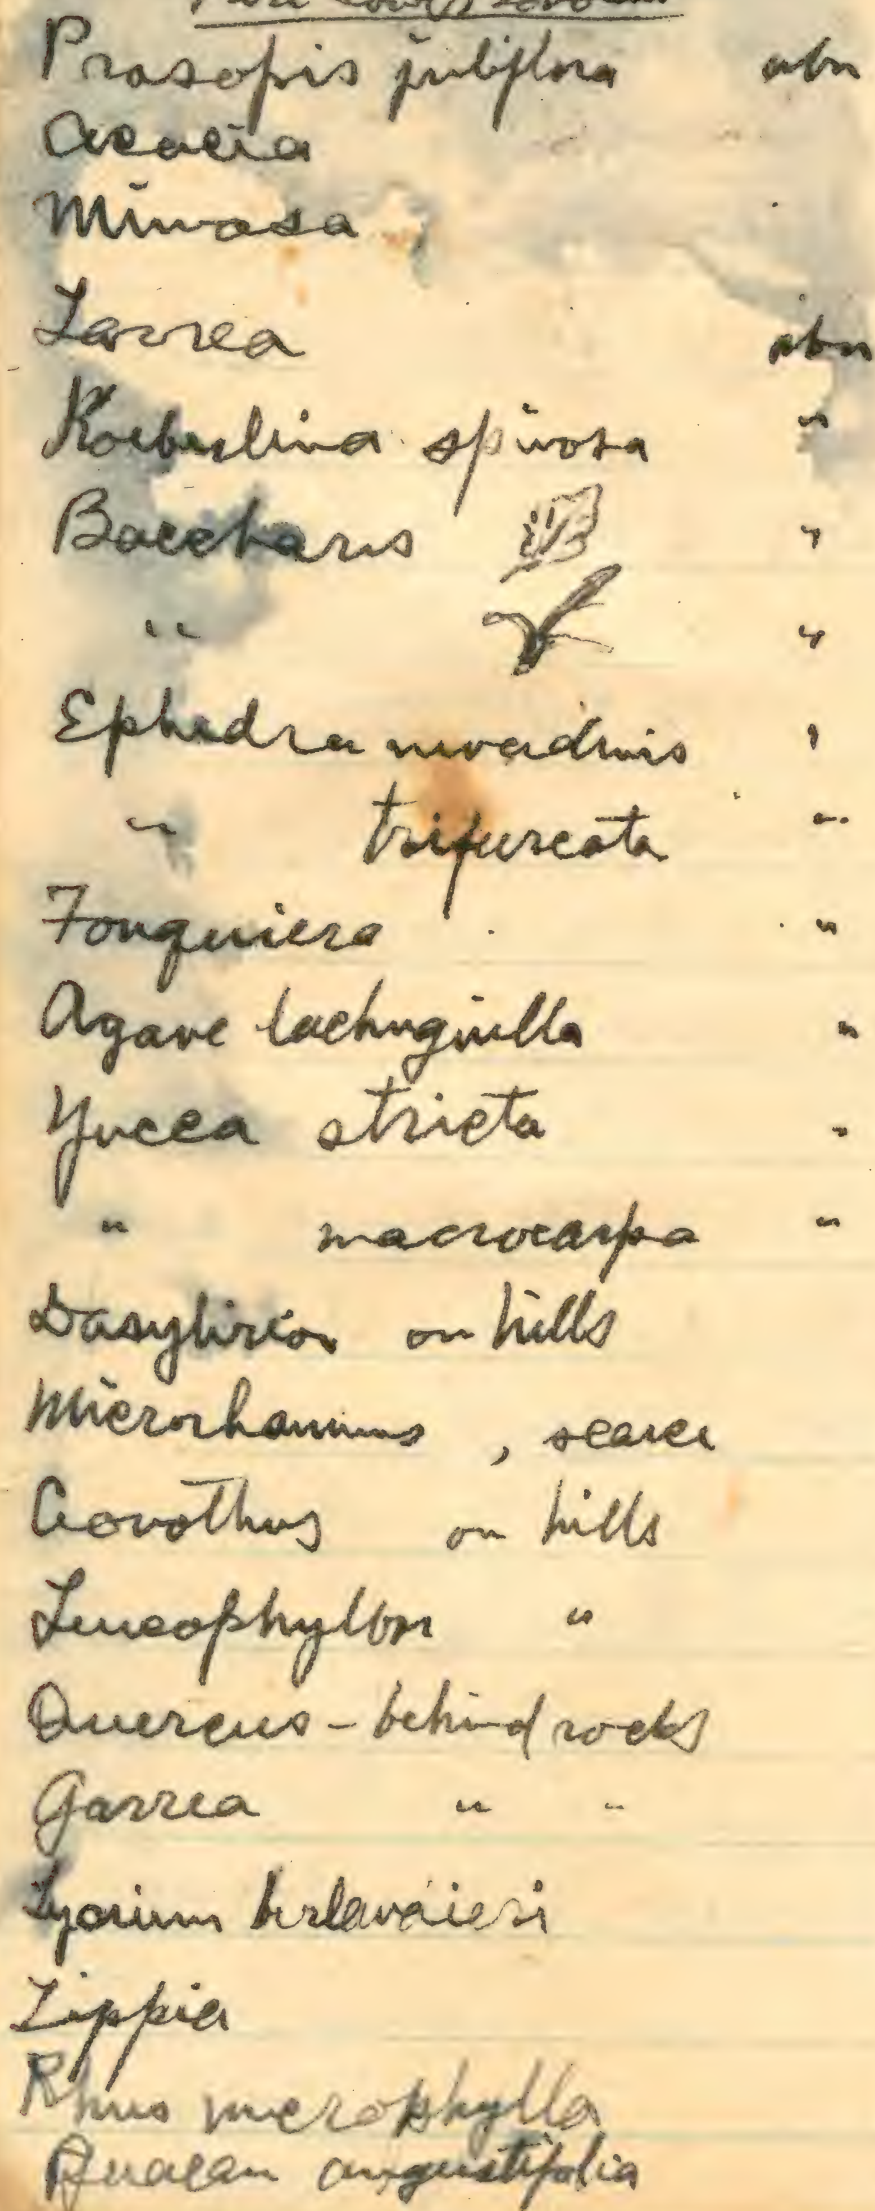 Lower Sonoran
Prosopis juliflora abn
Acacia
Mimosa
Larrea abn
Koeberlinia spinosa "
Baccharis "
" "
Ephedra nevadensis "
" trifurcata "
Fouquiera "
Agave lechuguilla "
Yucca stricta "
" macrocarpa "
Dasylirion on hills
Microrhamnus, scarce
Ceonothus on hills
Leucophyllon "
Quercus - behind rocks
Garrea " "
Lycium berlandieri
Lippia
Rhus microphylla
angustifolia